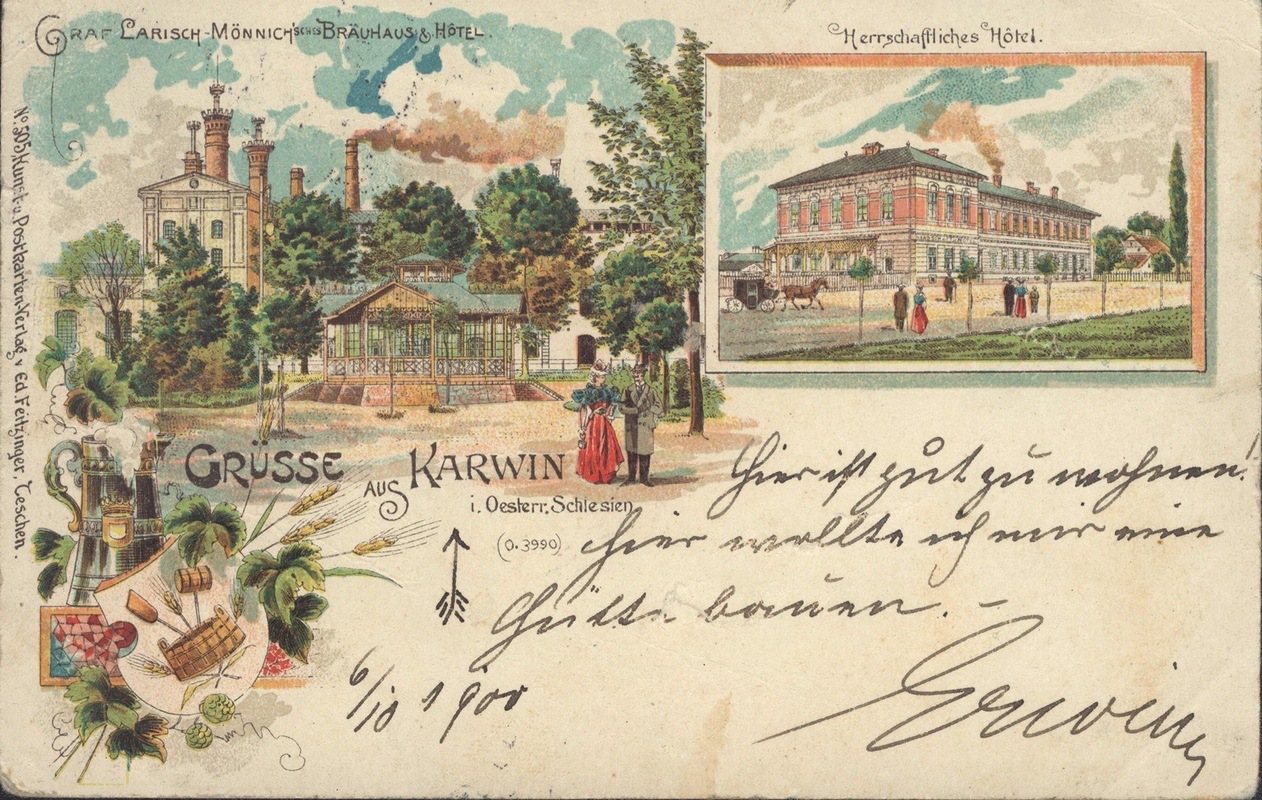 Graf Larisch-Mönnich'sches Bräuhaus & Hôtel.
Herrschaftliches Hôtel.
No 505 Kunst- u. Postkarten Verlag v Ed. Feitzinger, Teschen.
Grüsse aus Karwin
i. Oesterr. Schlesien
(O. 3990)
Hier ist gut zu wohnen!
hier wollte ich mir eine
Hütte bauen. –
6/10 1900
Erwin